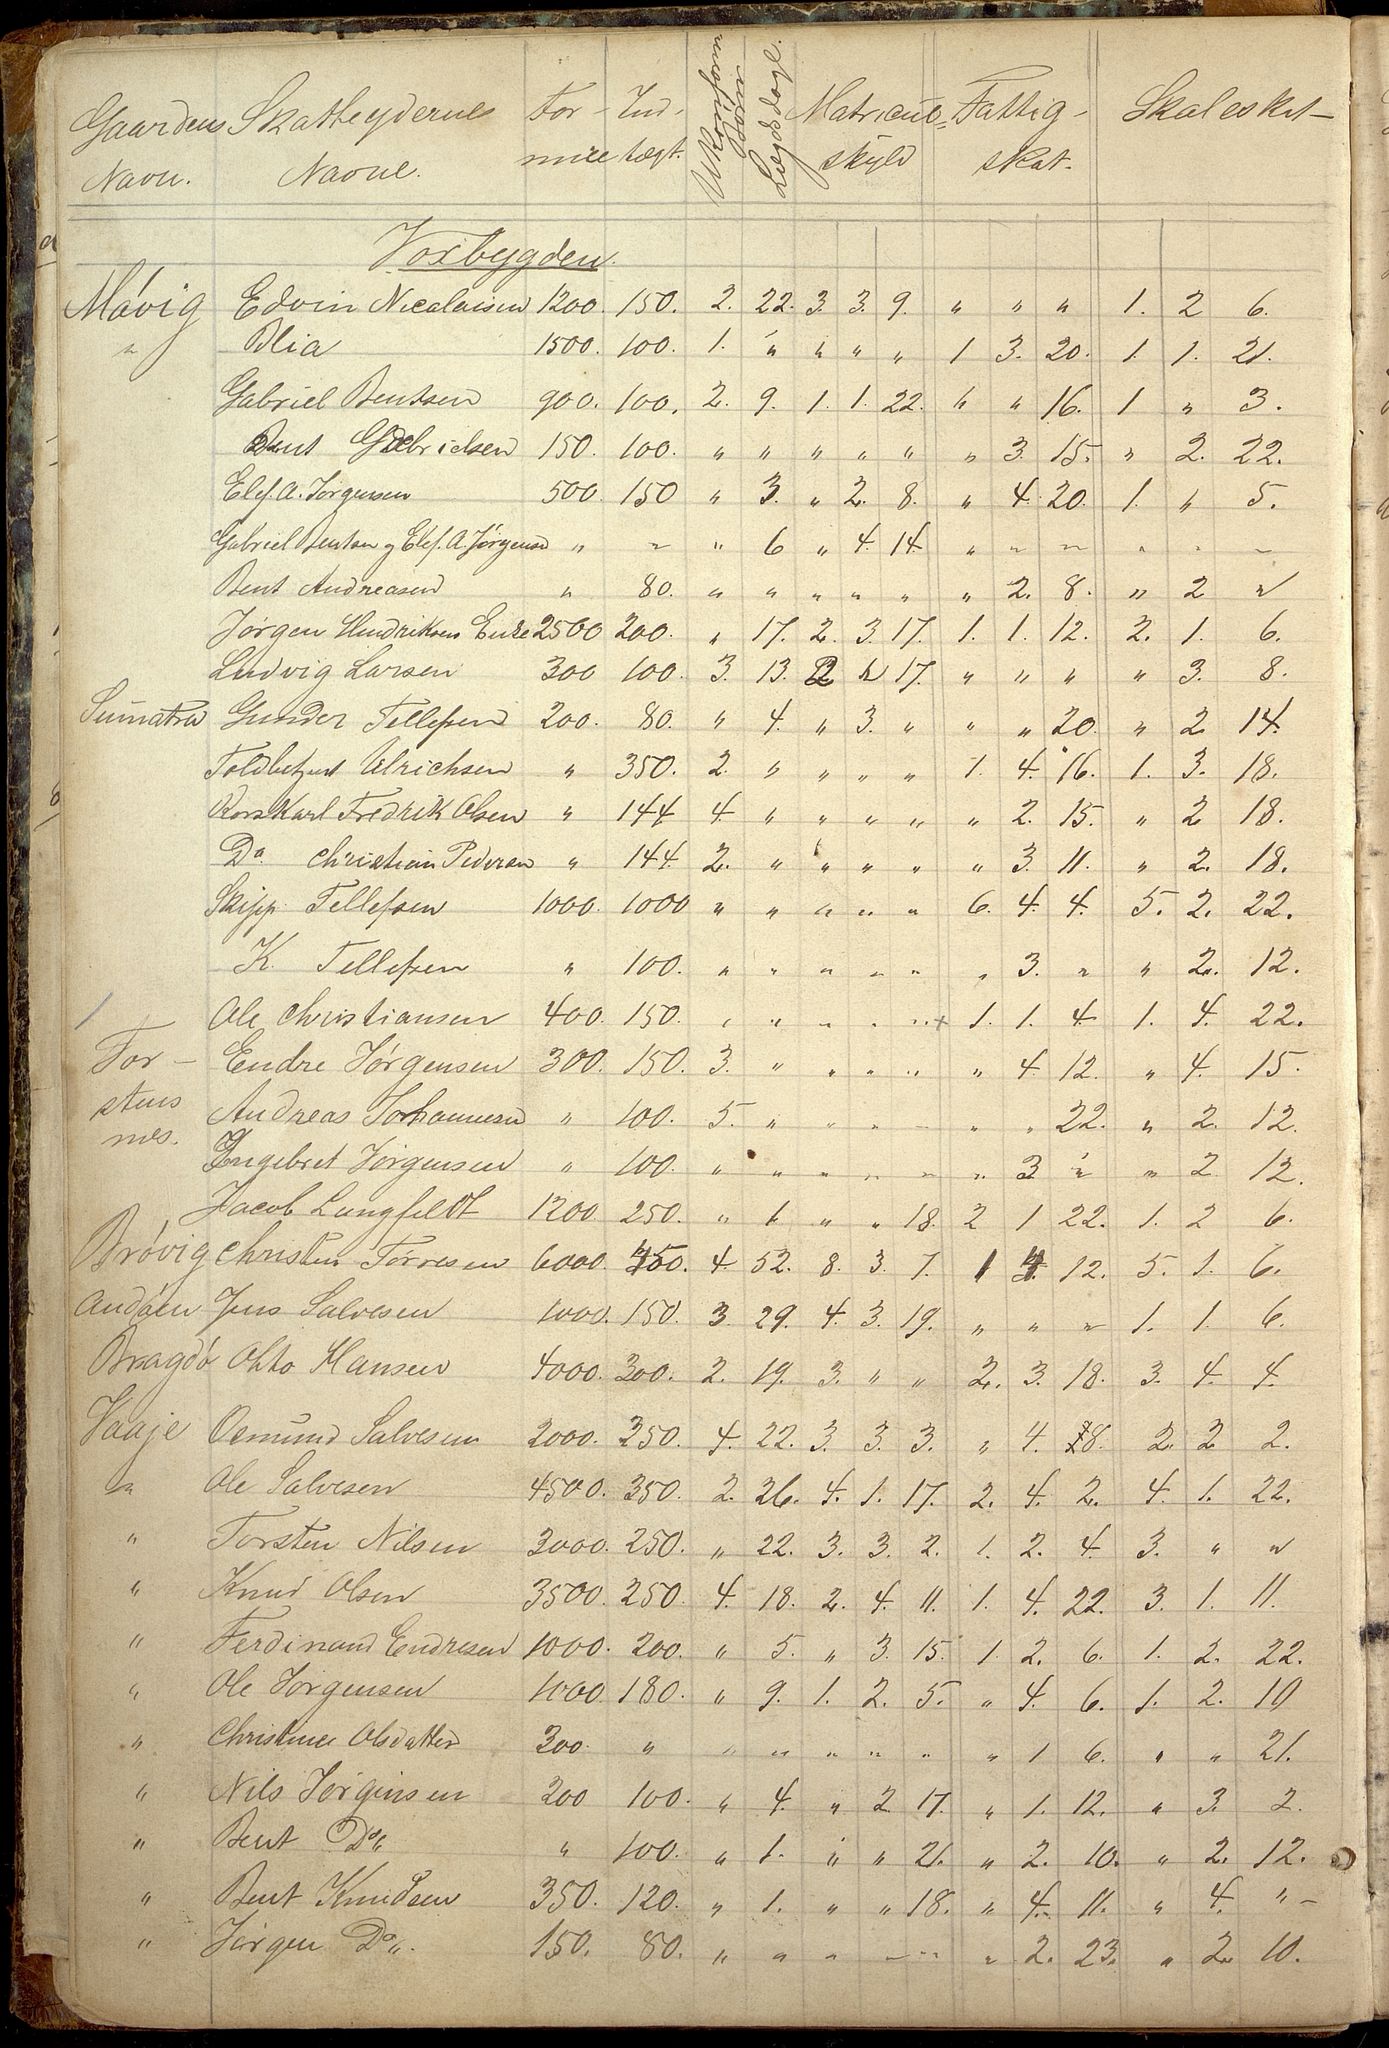 Gaardens Skatteydernes For- Ind- Matricul- Fattig- Skoleskat
Navn. Navne. mue tægt. Lægdsdage. skyld skat.
Vosbygden.
Måvig Edvin Nicolaisen 1200. 150. 2. 22. 3. 3. 9. " " " 1. 2 6.
" Blia 1500. 100. 1. " " " " 1 3. 20. 1. 1. 21.
Gabriel Bentsen 900. 100. 2. 9. 1. 1. 22. " " 16. 1 " 3.
Bent Gabrielsen 150. 100. " " " " " " 3. 15. " 2. 22.
Elef. A. Jørgensen 500. 150 " 3. " 2. 8. " 4. 20. 1. " 5.
Gabriel Bentsen og Elef. A. Jørgensen " " " 6 " 4. 14. " " " " " "
Bent Andreasen " 80. " " " " " " 2. 8. " 2 "
Jørgen Hendriksens Enke 2500 200. " 17. 2. 3. 17. 1. 1. 12. 2. 1. 6.
Ludvig Larsen 300 100. 3. 13. 2 " 17. " " " " 3. 8.
Sumatra Gunder Tellefsen 200. 80. " 4. " 3. " " " 20. " 2 14.
Toldbetjent Ulrichsen " 350. 2. " " " " 1. 4. 16. 1. 3. 18.
Rorskarl Fredrik Olsen " 144 4. " " " " " 2. 15. " 2 18.
Do. Christian Pedersen " 144 2. " " " " " 3. 11. " 2. 18.
Skipp. Tellefsen 1000. 1000 " " " " " 6. 4. 4. 5. 2. 22.
K. Tellefsen " 100. " " " " " " 3. " " 2. 12.
Ole Christiansen 400. 150. " " " " " + 1. 1. 4. 1. 4. 22.
Tor- Endre Jørgensen 300. 150. 3. " " " " " 4 12. " 4. 15.
stens Andreas Johannesen " 100. 5. " " " " " " 22. " 2. 12.
nes. Engebret Jørgensen " 100. " " " " " " 3 " " 2 12.
Jacob Lungfeldt 1200. 250. " 6 " " 18. 2 1 22. 1. 2 6.
Brøvig Christen Torresen 6000. 450. 4. 52. 8. 3. 7. 1 4. 12. 5. 1. 6.
Andåen Jens Salvesen 1000. 150. 3. 29. 4. 3. 19. " " " 1. 1. 6.
Bragdø Otto Hansen 4000. 300. 2. 19. 3. " " 2. 3. 18. 3. 4. 4.
Vaaje Osmund Salvesen 2000. 250. 4. 22. 3. 3. 3. " 4. 18. 2. 2 2.
" Ole Salvesen 4500. 350. 2. 26. 4. 1. 17. 2. 4. 2. 4. 1. 22.
" Torsten Nilsen 3000. 250. " 22. 3. 3. 2. 1. 2. 4. 3. " "
" Knud Olsen 3500. 250. 4. 18. 2. 4. 11. 1. 4. 22. 3. 1. 11.
" Ferdinand Endresen 1000. 200. " 5. " 3. 15. 1. 2. 6. 1. 2. 22.
" Ole Jørgensen 1000. 180. " 9. 1. 2. 5. " 4. 6. 1. 2. 10
" Christence Olsdatter 300. " " " " " " " 1 6. " " 21.
" Nils Jørginsen 200 100. " 4. " 2 17. " 1. 12. " 3. 2.
" Bent Do. " 100. " 1. " " 21. " 2. 10. " 2. 12.
" Bent Knudsen 350. 120. " 1. " " 18. " 4. 11. " 4. "
" Jørgen Do. 150. 80. " " " " " " 2. 23. " 2. 10.